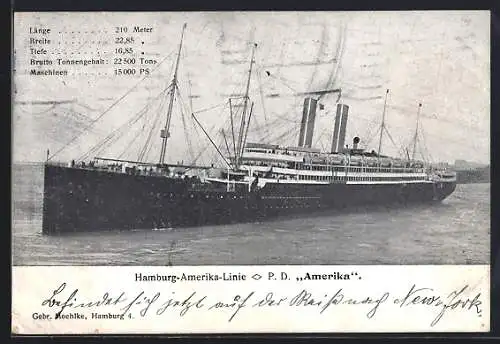 Länge . . . . 210 Meter
Breite . . . . 22,85 „
Tiefe . . . . 16,85 „
Brutto Tonnengehalt: 22 500 Tons
Maschinen . . . 15 000 PS
Hamburg-Amerika-Linie <> P. D. „Amerika“.
Befindet sich jetzt auf der Reiß nach New-York.
Gebr. Moehlke, Hamburg 4.